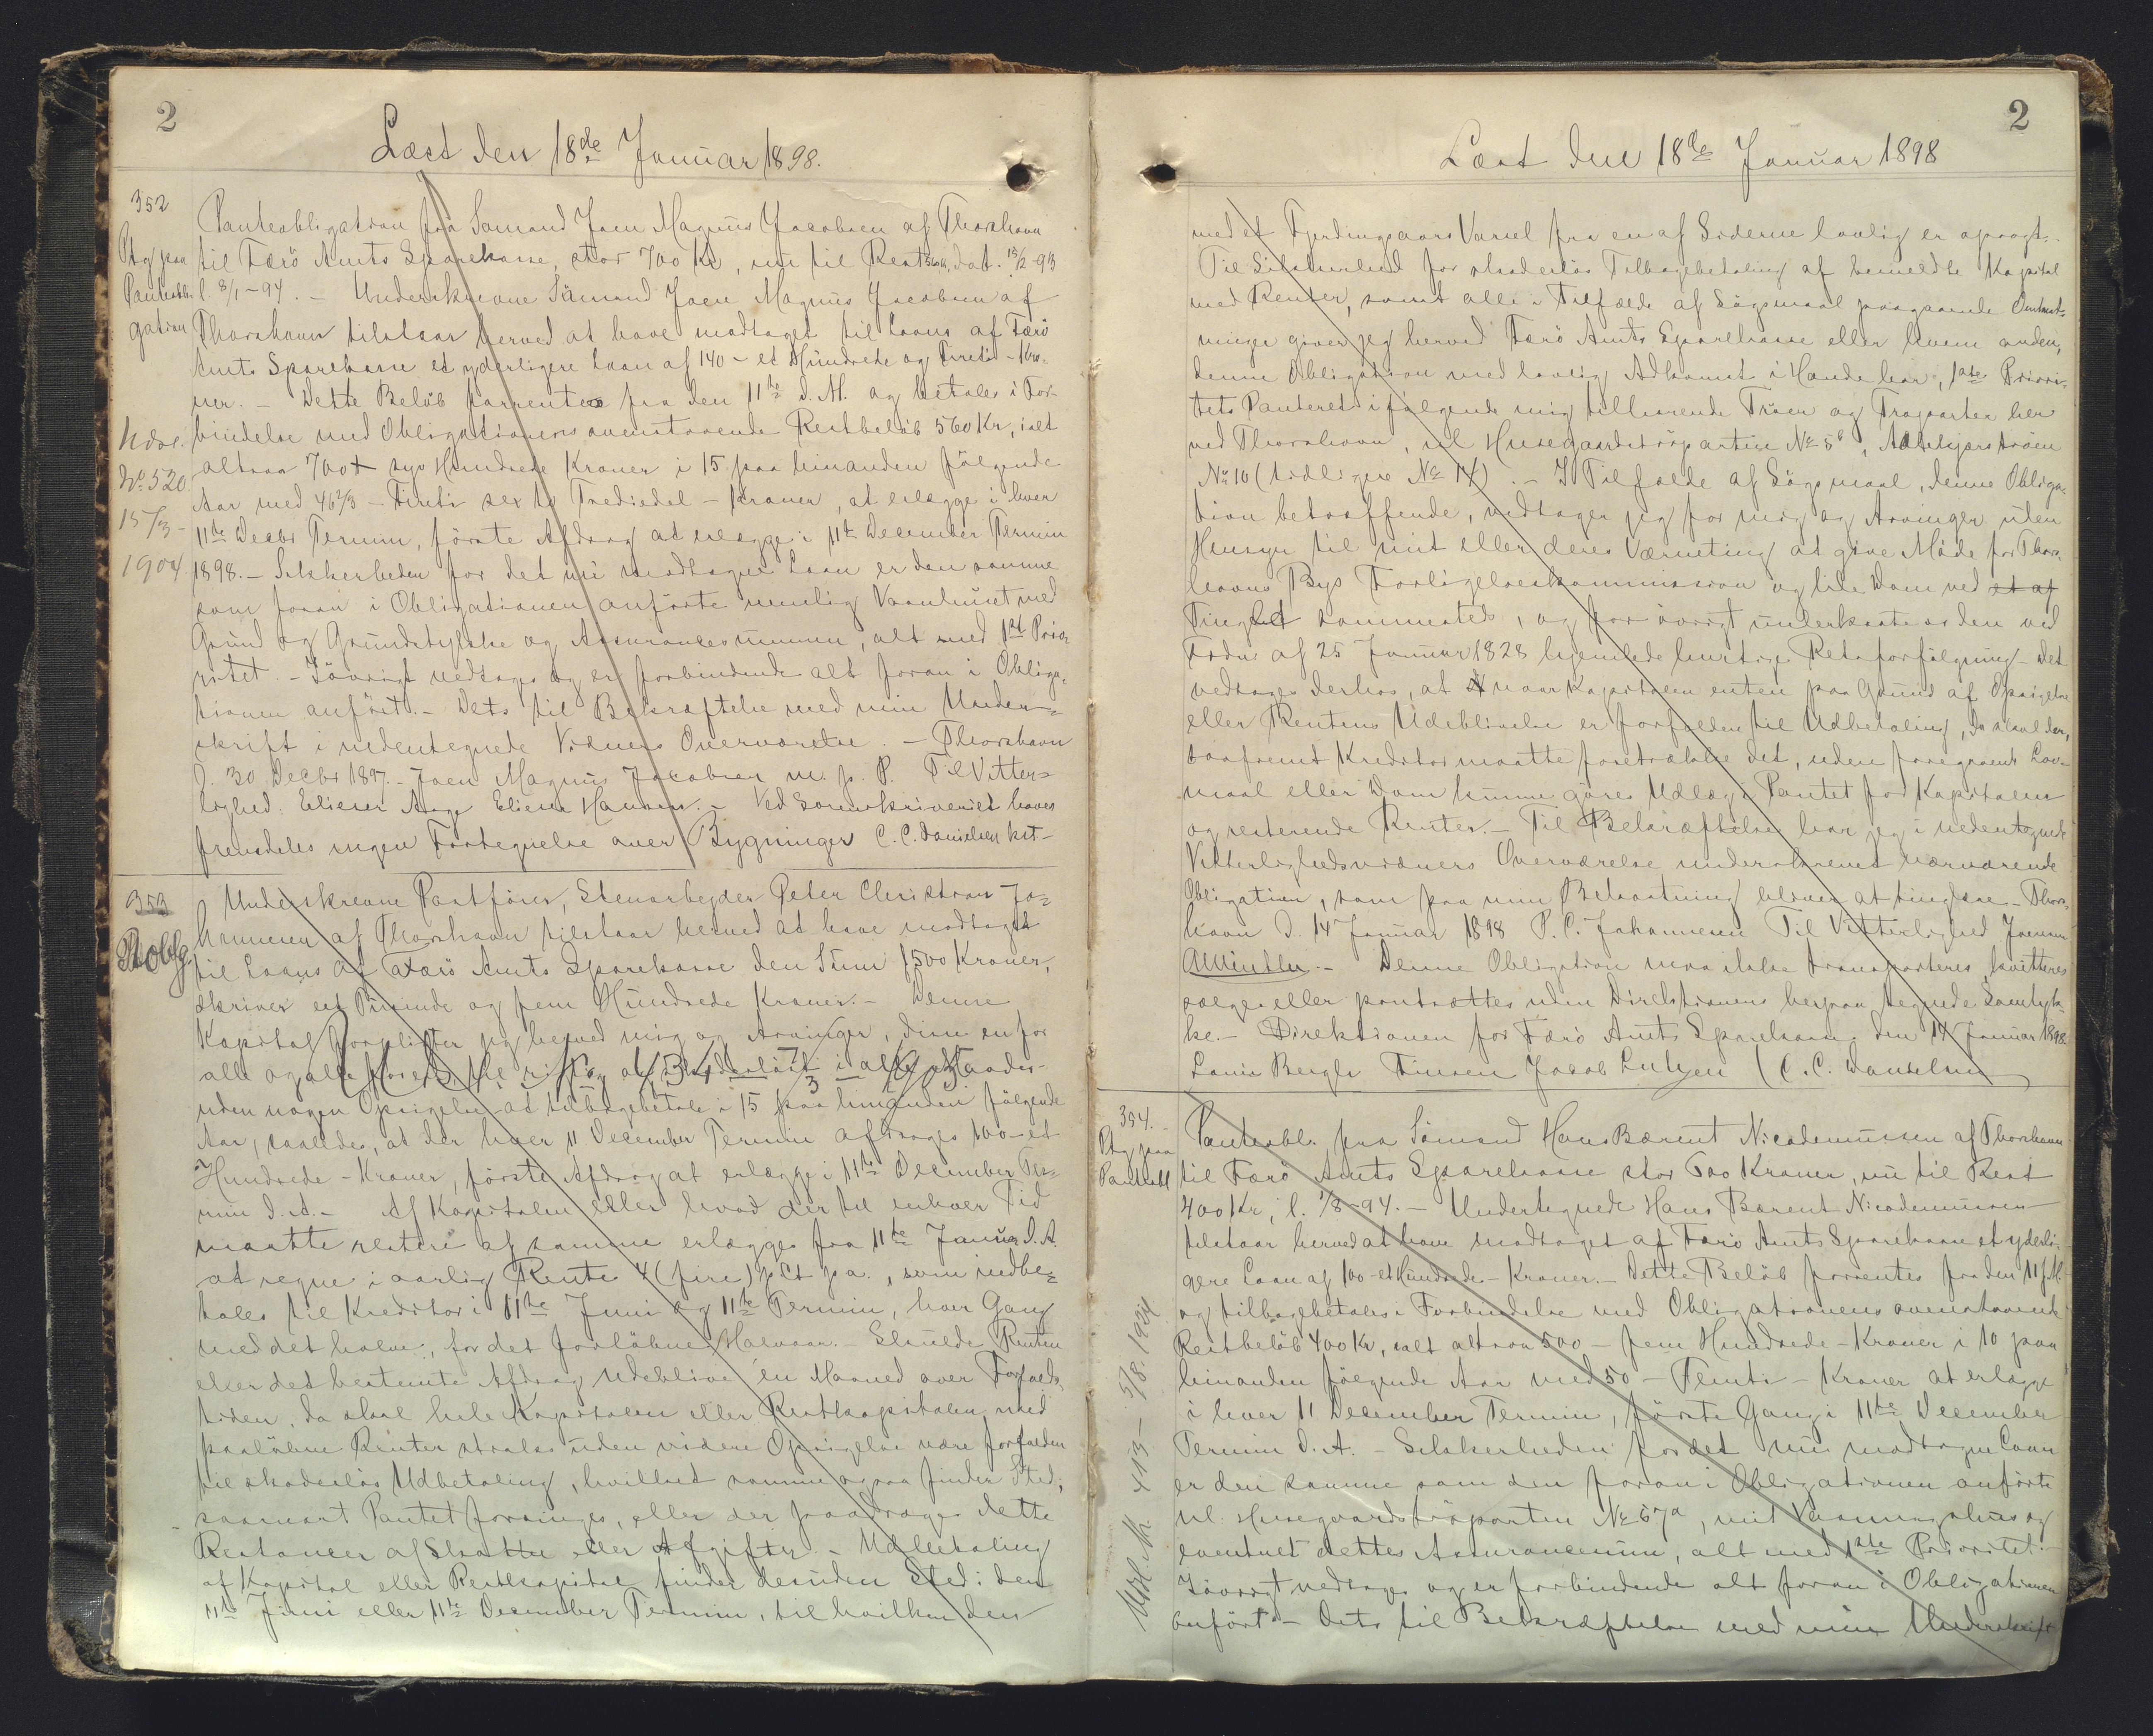 2
Læst den 18de Januar 1898.
352
Ptg paa
Panteobli-
gation
Panteobligation fra Sømand Joen Magnus Jacobsen af Thorshavn
til Færø Amts Sparekasse, stor 700 Kr, nu til Rest 560 Kr, dat. 15/12-93
l. 8/1-94. - Underskrevne Sømand Joen Magnus Jacobsen af
Thorshavn tilstaar herved at have modtaget til Laans af Færø
Amts Sparekasse et yderligere Laan af 140 - et Hundrede og Firreti - Kro-
ner. - Dette Beløb forrentes fra den 11te d. M. og betales i For-
bindelse med Obligationens ovenstaaende Restbeløb 560 Kr, ialt
altsaa 700 syv Hundrede Kroner i 15 paa hinanden følgende
Aar med 46 2/3 - Firreti sex to Trediedel - Kroner, at erlægge i hver
11te Decbr Termin, første Afdrag at erlægge i 11te December Termin
1898. - Sikkerheden for det nu modtagne Laan er den samme
som foran i Obligationen anførte nemlig Vaanhuset med
Grund og Grundstykke og Assurancesummen, alt med 1st Prio-
ritet. - Iøvrigt vedtages og er forbindende alt foran i Obliga-
tionen anført. - Dets til Bekræftelse med min Under-
skrift i nedentegnede Vidners Overværelse. - Thorshavn
d. 30 Decbr 1897. - Joen Magnus Jacobsen m. p. P. Til Vitter-
lighed. Elieser Aage Eliesar Hansen. - Ved Sorenskriveriet haves
fremdeles ingen Fortegnelse over Bygninger C. C. Danielsen kst. -
Udsl.
No 520
15/3-
1904.
353
Poblg.
Underskrevne Postfører, Stenarbejder Peter Christian Jo-
hannesen af Thorshavn tilstaar herved at have modtaget
til Laans af Færø Amts Sparekasse den Sum 1500 Kroner,
skriver et Tusinde og fem Hundrede Kroner. - Denne
Kapital forpligter jeg herved mig og Arvinger, een for
alle og alle for een
uden nogen Opsigelse at tilbagebetale i 15 paa hinanden følgende
Aar, saaledes, at der hver 11 December Termin afdrages 100 - et
Hundrede - Kroner, første Afdrag at erlægge i 11te December Ter-
min d. A. - Af Kapitalen eller hvad der til enhver Tid
maatte restere af samme erlægges fra 11te Januar d. A.
at regne i aarlig Rente 4 (fire) pCt p.a., som indbe-
tales til Kreditor i 11te Juni og 11te Termin, hver Gang
med det halve, for det forløbne Halvaar. - Skulde Renten
eller det bestemte Afdrag udeblive en Maaned over Forfalds-
tiden, da skal hele Kapitalen eller Restkapitalen med
paaløbne Renter straks uden videre Opsigelse være forfalden
til skadesløs Udbetaling, hvilket samme ogsaa finder Sted,
saasnart Pantet forringes, eller der paadrages dette
Restancer af Skatter eller Afgifter. - Udbetaling
af Kapital eller Restkapital finder desuden Sted i den
11te Juni eller 11te December Termin, til hvilken den
2
Læst den 18de Januar 1898
med et Fjerdingaars Varsel fra en af Siderne lovlig er opsagt. -
Til Sikkerhed for skadesløs Tilbagebetaling af bemeldte Kapital
med Renter, samt alle i Tilfælde af Søgsmaal paagaaende Omkost-
ninger giver jeg herved Færø Amts Sparekasse eller hvem anden,
denne Obligation med lovlig Adkomst i Hænde har, 1ste Priori-
tets Panteret i følgende mig tilhørende Trøer og Trøparter her
ved Thorshavn, nl Husegaardstrøpartie No 5b,
No 10 (tidligere No 14). - I Tilfælde af Søgsmaal, denne Obliga-
tion betræffende, vedtager jeg for mig og Arvinger uden
Hensyn til mit eller deres Værneting at give Møde for Thors-
havns Bys Forligelseskommission og lide Dom ved et af
Tinget sammesteds, og for øvrigt underkaste os den ved
Frdn. af 25 Januar 1828 hjemlede hurtige Retsforfølgning - Det
vedtages derhos, at naar Kapitalen enten paa Grund af Opsigelse
eller Rentens Udeblivelse er forfalden til Udbetaling, da skal der,
saafremt Kreditor maatte foretrække det, uden foregaaende Lov-
maal eller Dom kunne gøres Udlæg i Pantet for Kapitalen
og resterende Renter. - Til Bekræftelse har jeg i nedentegnede
Vitterlighedsvidners Overværelse underskrevet nærværende
Obligation, som paa min Bekostning bliver at tinglæse. - Thors-
havn d. 14 Januar 1898 P. C. Johannesen Til Vitterlighed Joensen
AMüller. - Denne Obligation maa ikke transporteres, kvitteres
sælges eller pantsættes uden Direktionens herpaa tegnede Samtyk-
ke. - Direktionen for Færø Amts Sparekasse, den 14 Januar 1898
Louis Bergh Finsen Jacob Lützen / C. C. Danielsen
354.
Ptg paa
Panteobl
Panteobl. fra Sømand Hans Barent Nicodemussen af Thorshavn
til Færø Amts Sparekasse stor 600 Kroner, nu til Rest
400 Kr, l. 1/8-94. - Undertegnede Hans Barent Nicodemussen
tilstaar herved at have modtaget af Færø Amts Sparekasse et yderli-
gere Laan af 100 - et Hundrede - Kroner. - Dette Beløb forrentes fra den 11 f. M.
og tilbagebetales i Forbindelse med Obligationens ovenstaaende
Restbeløb 400 Kr, ialt altsaa 500 - fem Hundrede - Kroner i 10 paa
hinanden følgende Aar med 50 - Femti - Kroner at erlægge
i hver 11 December Termin, første Gang i 11te December
Termin d. A. - Sikkerheden for det nu modtagne Laan
er den samme som den foran i Obligationen anførte
nl. Husegaardstrøparten No 67a, mit Vaaningshus og
eventuel dettes Assurancesum, alt med 1ste Prioritet. -
Iøvrigt vedtages og er forbindende alt foran i Obligationen
anført - Dets til Bekræftelse med min Underskrift